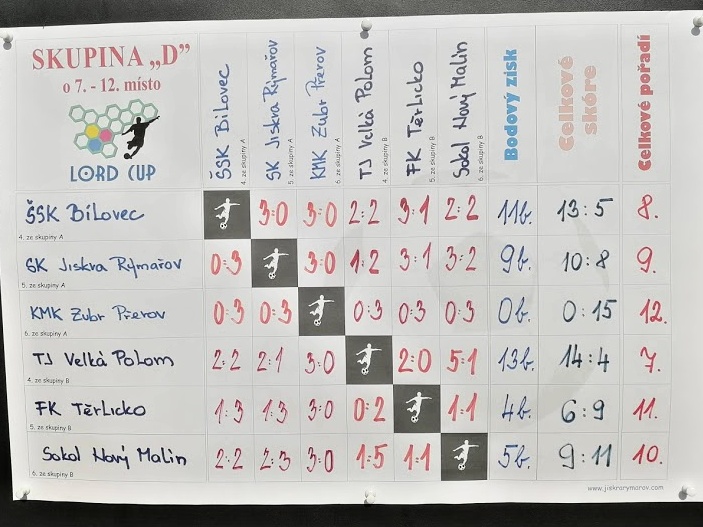 SKUPINA „D"
o 7. - 12. místo
LORD CUP
ŠSK Bílovec
4. ze skupiny A
SK Jiskra Rýmařov
5. ze skupiny A
KMK Zubr Přerov
6. ze skupiny A
TJ Velká Polom
4. ze skupiny B
FK Těrlicko
5. ze skupiny B
Sokol Nový Malín
6. ze skupiny B
Bodový zisk
Celkové skóre
Celkové pořadí
ŠSK Bílovec 3:0 3:0 2:2 3:1 2:2 11b. 13:5 8.
4. ze skupiny A
SK Jiskra Rýmařov 0:3 3:0 1:2 3:1 3:2 9b. 10:8 9.
5. ze skupiny A
KMK Zubr Přerov 0:3 0:3 0:3 0:3 0:3 0b. 0:15 12.
6. ze skupiny A
TJ Velká Polom 2:2 2:1 3:0 2:0 5:1 13b. 14:4 7.
4. ze skupiny B
FK Těrlicko 1:3 1:3 3:0 0:2 1:1 4b. 6:9 11.
5. ze skupiny B
Sokol Nový Malín 2:2 2:3 3:0 1:5 1:1 5b. 9:11 10.
6. ze skupiny B
www.jiskrarymarov.com